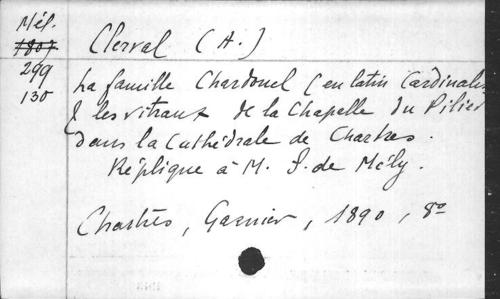 Mél.
1807
299
130
Clerval (A.)
La famille Chardonel (en latin Cardinalis
& les vitraux de la Chapelle du Pilier
dans la Cathédrale de Chartres.
Réplique à M. F. de Mély.
Chartres, Garnier, 1890, 8°